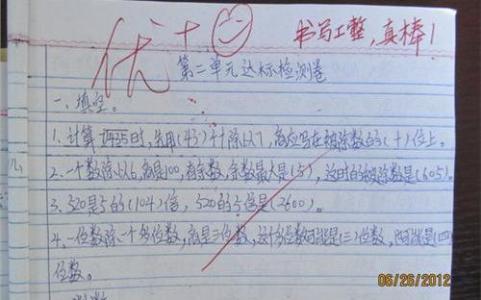 优+
书写工整,真棒!
第二单元达标检测卷
一、填空。
1.计算 时,先用(43)十除以7,商应写在被除数的(十)位上。
2.一个数除以6,商是100,有余数,余数最大是(5),这时的被除数是(605)。
3.520是5的(104)倍,520的5倍是(2600)。
4.一位数除一个多位数,商是三位数,这个多位数可能是(三)位数,也可能是(四)
位数。
06/26/2012